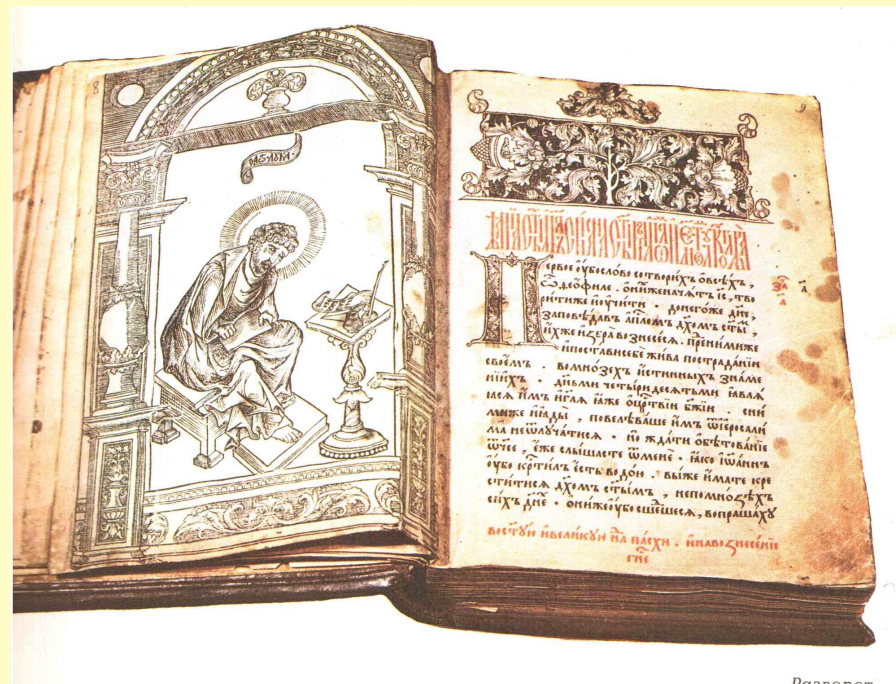 8
9
Первое ѹ҆бо слово сотворихъ ѡ҆всѣхъ,
ѽ, ѳео́филе . ѡ҆ни́хже начя́тъ і҆с҃, тво
ри́тиже и҆ ѹ҆чи́ти . донего́же дн҃е,
запове́дав а҆пⷭ҇лом дх҃омъ ст҃ы́ ,
и҆́хже и҆збра̀ вознесеся . пре́дни́миже
и҆ поста́ви себѐ жи́ва по страда́нїи
свое́мъ . во мно́зех и҆́стинныхъ зна́ме
нїи́хъ . дньмѝ четы́ридесятьми ꙗ҆вля́
ꙗся и҆́мъ и҆ гл҃ꙗ ꙗ҆́же ѡ҆ црⷭ҇твїи бж҃їи . сни́
миже и҆ ꙗ҆ды̀ , повелѣва́ше и҆́мъ ѿ і҆еросали
ма не ѿлуча́тися . но жда́ти ѡ҆бѣтова́нїе
ѿч҃ее , е҆́же слы́шасте ѿ менѐ . ꙗ҆́ко і҆ѡа́ннъ
ѹ҆́бо крⷭ҇ти́лъ е҆́сть водо́ю . вы́же и҆́мате кре
сти́тися дх҃омъ ст҃ы́мъ , не по мно́ѕѣхъ
си́хъ дн҃е . ѡ҆ни́же ѹ҆́бо сше́дшеся , вопраша́хꙋ
во ст҃ꙋю и҆ вели́кꙋю нⷣлю па́схи . и҆ на вознесе́нїе
гн҃е
за
а
Разворот